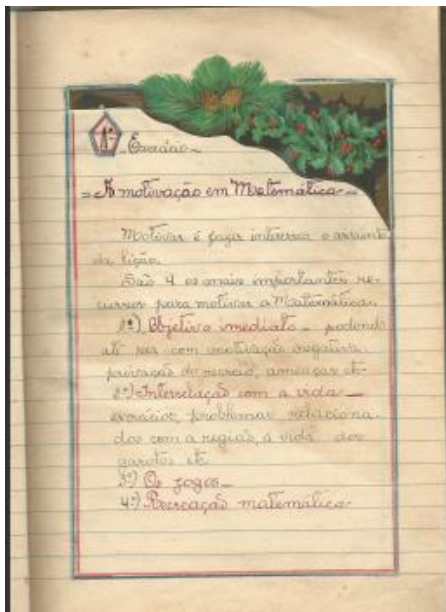 1º
Exercício
= A motivação em Matemática =
Motivar é fazer interessar o assunto
da lição.
São 4 os mais importantes re-
cursos para motivar a Matemática.
1º) Objetivo imediato - podendo
até ser com motivação negativa.
privação do recreio, ameaças etc
2º) Interrelação com a vida -
exercícios, problemas relaciona-
dos com a região, a vida dos
garotos etc
3º) Os jogos -
4º) Recreação matemática